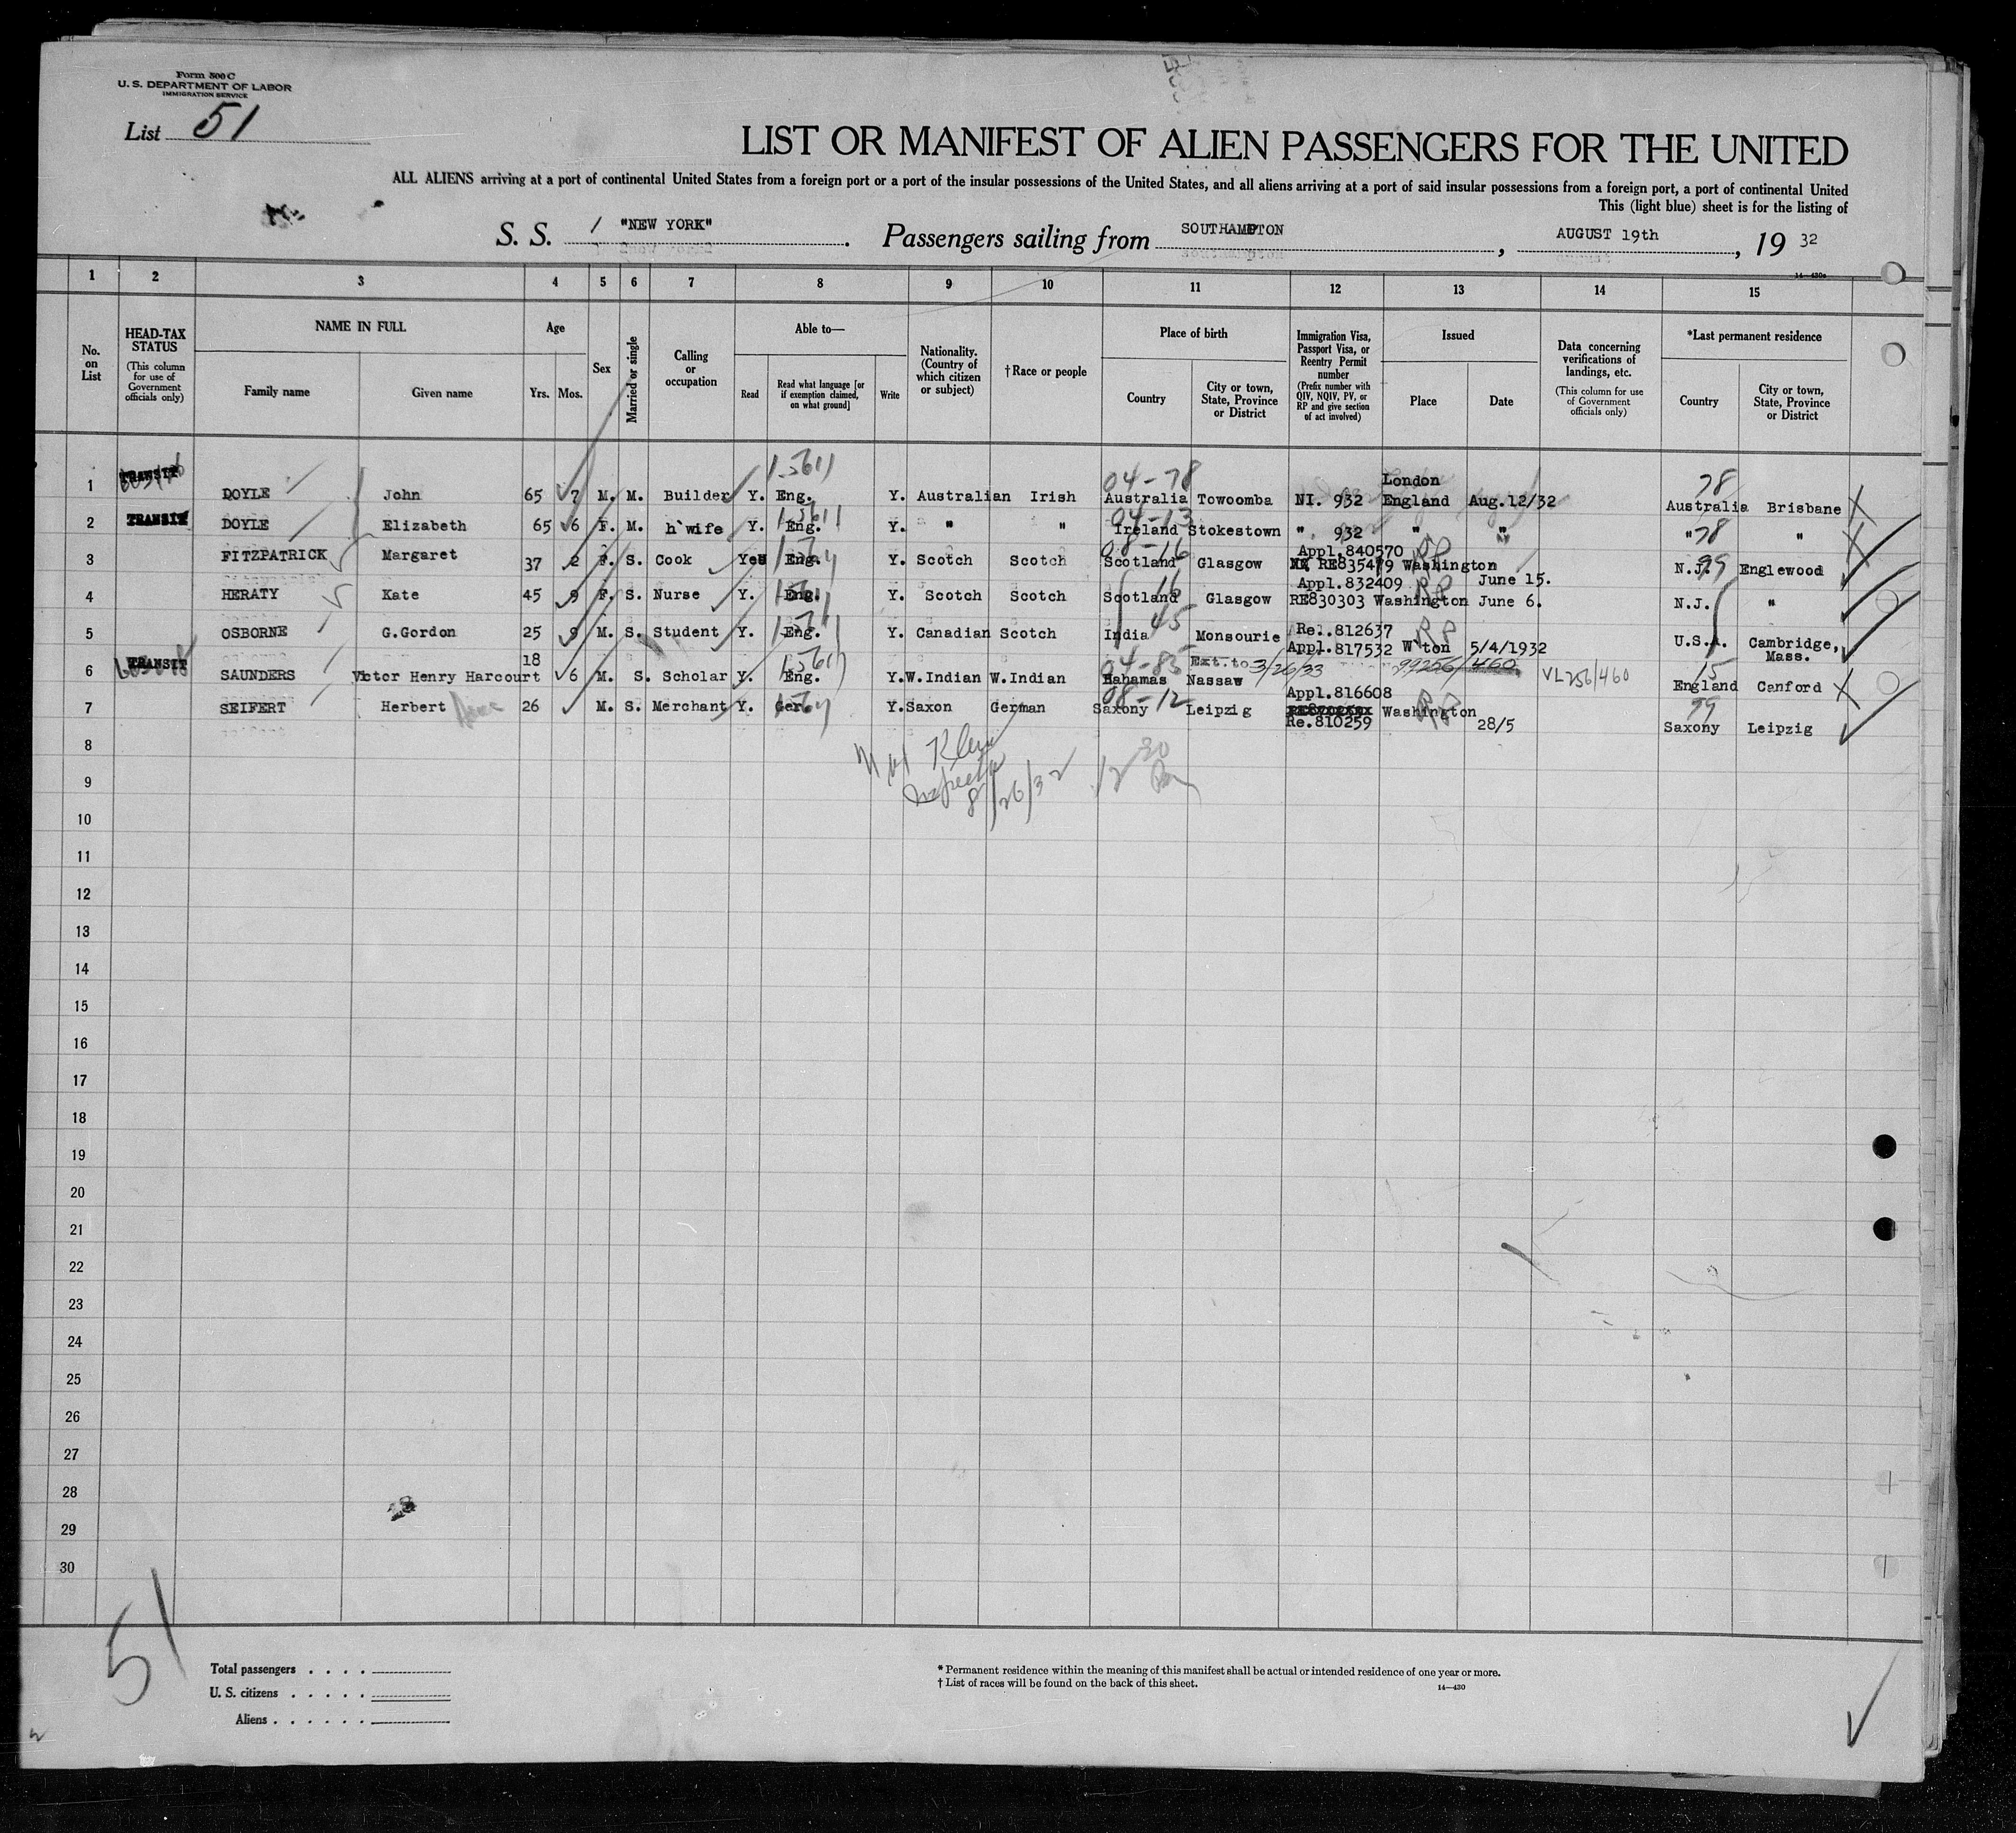 Form 500 C
U. S. DEPARTMENT OF LABOR
IMMIGRATION SERVICE
List 51
LIST OR MANIFEST OF ALIEN PASSENGERS FOR THE UNITED
ALL ALIENS arriving at a port of continental United States from a foreign port or a port of the insular possessions of the United States, and all aliens arriving at a port of said insular possessions from a foreign port, a port of continental United
This (light blue) sheet is for the listing of
S. S. "NEW YORK" . Passengers sailing from SOUTHAMPTON , AUGUST 19th , 19 32
14—430a
1 2 3 4 5 6 7 8 9 10 11 12 13 14 15
No. on List
HEAD-TAX STATUS (This column for use of Government officials only)
NAME IN FULL Family name Given name
Age Yrs. Mos.
Sex
Married or single
Calling or occupation
Able to— Read Read what language [or if exemption claimed, on what ground] Write
Nationality. (Country of which citizen or subject)
†Race or people
Place of birth Country City or town, State, Province or District
Immigration Visa, Passport Visa, or Reentry Permit number (Prefix number with QIV, NQIV, PV, or RP and give section of act involved)
Issued Place Date
Data concerning verifications of landings, etc. (This column for use of Government officials only)
*Last permanent residence Country City or town, State, Province or District
1 TRANSIT DOYLE John 65 7 M. M. Builder Y. Eng. Y. Australian Irish 04-78 Australia Towoomba NI. 932 London England Aug.12/32 78 Australia Brisbane
2 TRANSIT DOYLE Elizabeth 65 6 F. M. h`wife Y. Eng. Y. " " 04-13 Ireland Stokestown " 932 " " " 78 "
3 FITZPATRICK Margaret 37 2 F. S. Cook Yes Eng. Y. Scotch Scotch 08-16 Scotland Glasgow Appl.840570 RE835479 RP Washington N.J. 99 Englewood
4 HERATY Kate 45 9 F. S. Nurse Y. Eng. Y. Scotch Scotch 16 Scotland Glasgow Appl.832409 June 15. RE830303 RP Washington June 6. N.J. "
5 OSBORNE G.Gordon 25 9 M. S. Student Y. Eng. Y. Canadian Scotch 45 India Monsourie Re..812637 Appl.817532 RP W'ton 5/4/1932 U.S.A. Cambridge, Mass.
6 TRANSIT SAUNDERS Victor Henry Harcourt 18 6 M. S. Scholar Y. Eng. Y. W.Indian W.Indian 04-85 Bahamas Nassaw Ext.to 3/26/33 99256/460 VL256/460 15 England Canford
7 SEIFERT Herbert 26 M. S. Merchant Y. Ger. Y. Saxon German 08-12 Saxony Leipzig Appl.816608 Re.810259 RP Washington 28/5 99 Saxony Leipzig
8
Klein
Inspector
8/26/32 12 30
9
10
11
12
13
14
15
16
17
18
19
20
21
22
23
24
25
26
27
28
29
30
51
Total passengers . . . .
U. S. citizens . . . . .
Aliens . . . . . .
* Permanent residence within the meaning of this manifest shall be actual or intended residence of one year or more.
† List of races will be found on the back of this sheet.
14—430